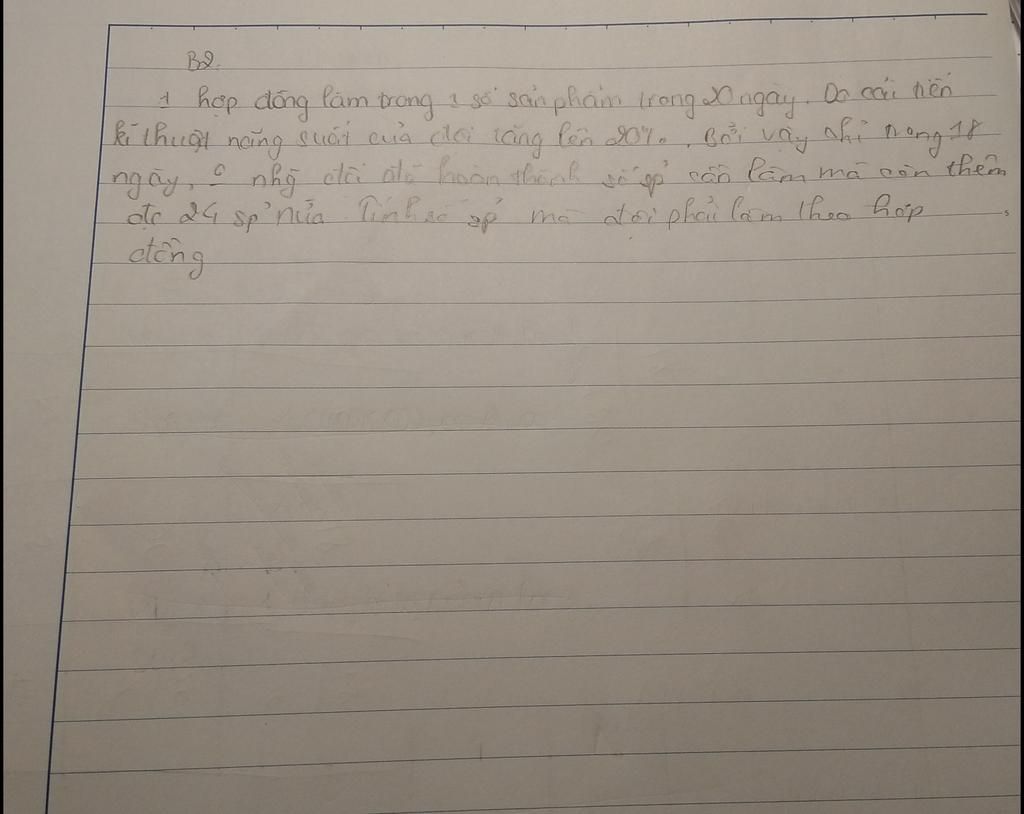 B2.
1 hợp đồng làm trong 1 số sản phẩm trong 20 ngày. Do cải tiến
kĩ thuật năng suất của đội tăng lên 20%. Bởi vậy chỉ trong 18
ngày, o nhg đội đã hoàn thành số sp cần làm mà còn thêm
đc 24 sp nữa Tính số sp mà đội phải làm theo hợp
đồng